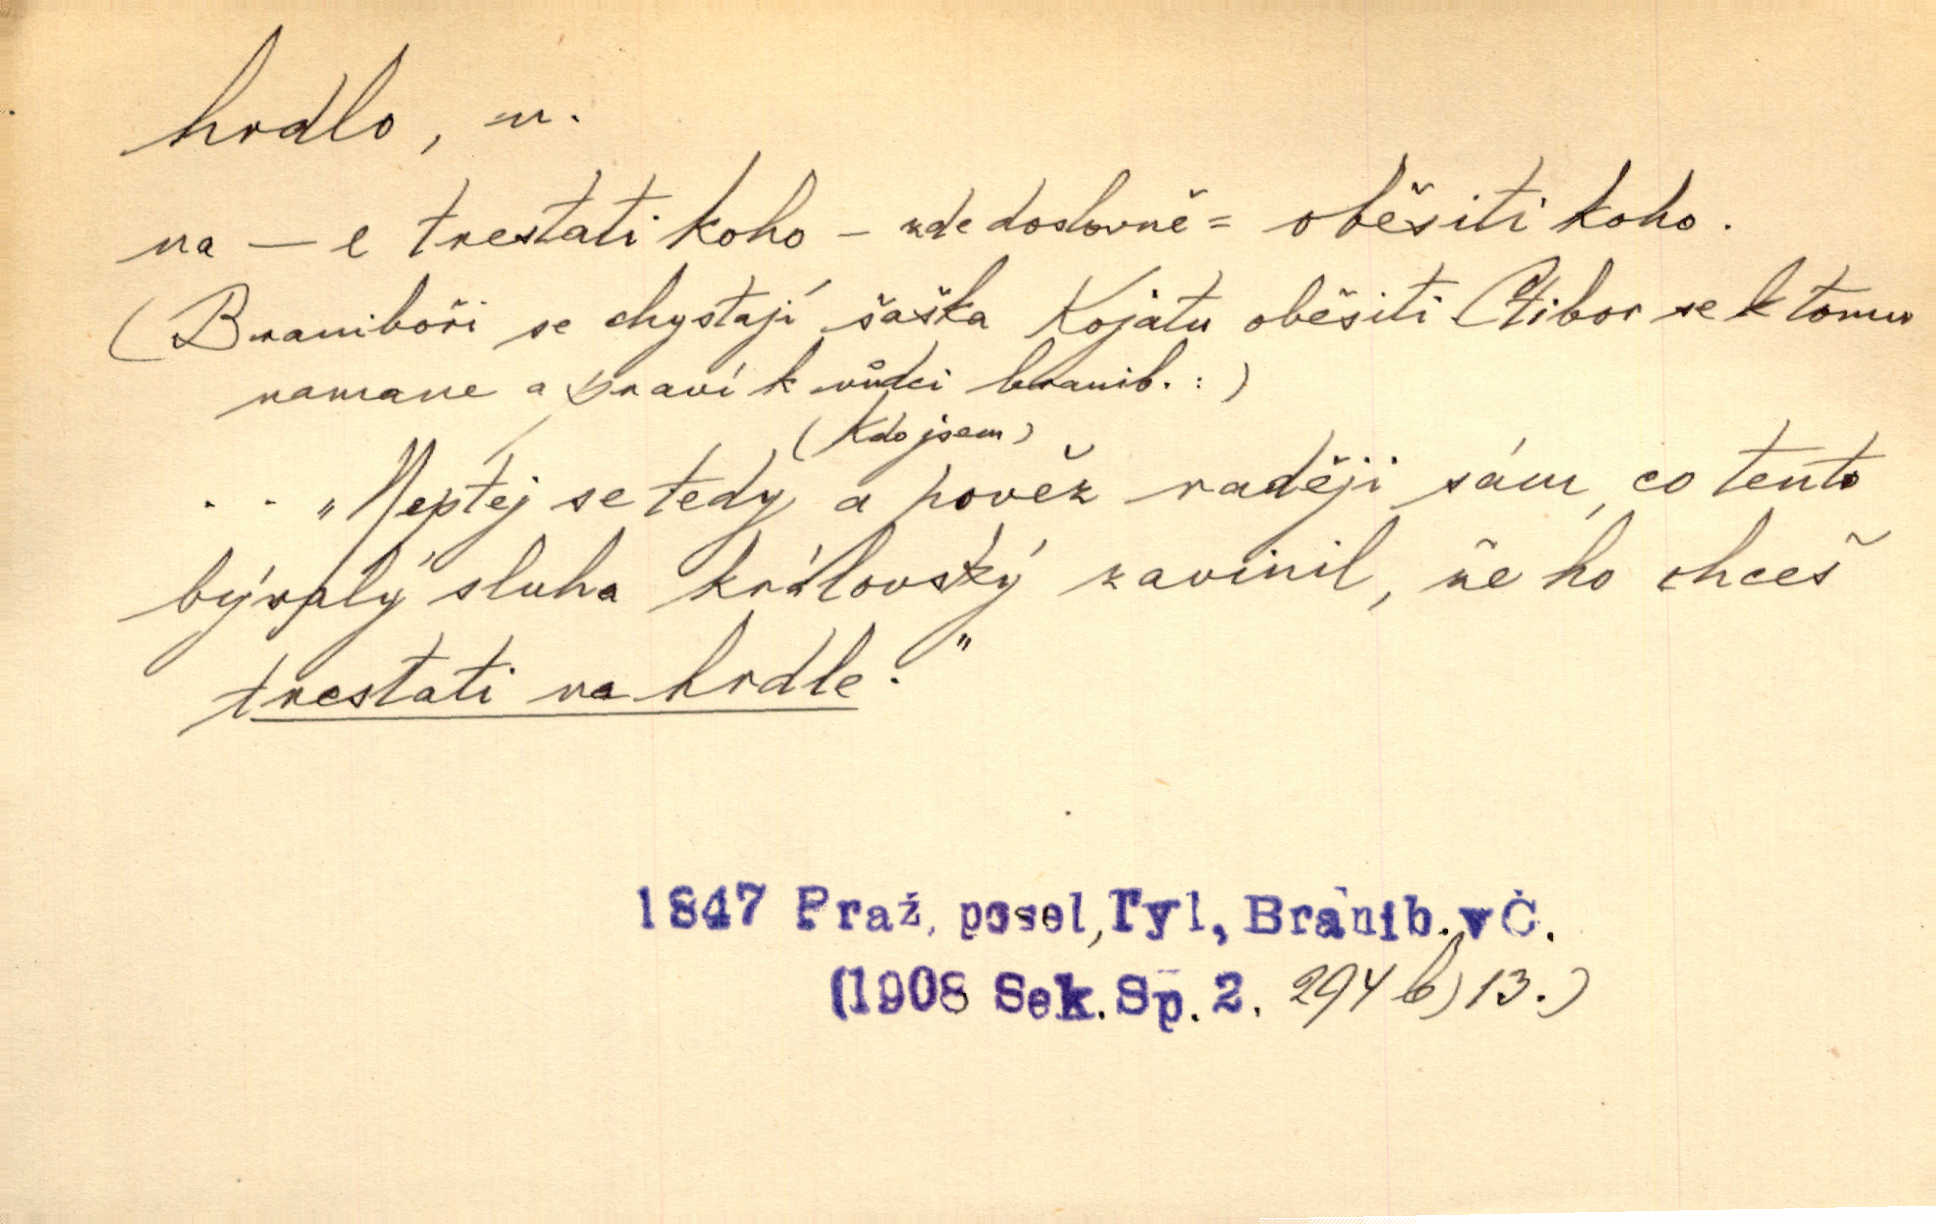 hrdlo, n.
na — e trestati koho — zde doslovně = oběsiti koho.
(Braniboři se chystají šaška Kojatu oběsiti. Ctibor se k tomu
namane a praví k vůdci branib. :)
(Kdo jsem)
. . „Neptej se tedy a pověz raději sám, co tento
bývalý sluha královský zavinil, že ho chceš
trestati na hrdle."
1847 Praž. posel, Tyl, Branib. v Č.
(1908 Sek. Sp. 2. 294 b) 13.)